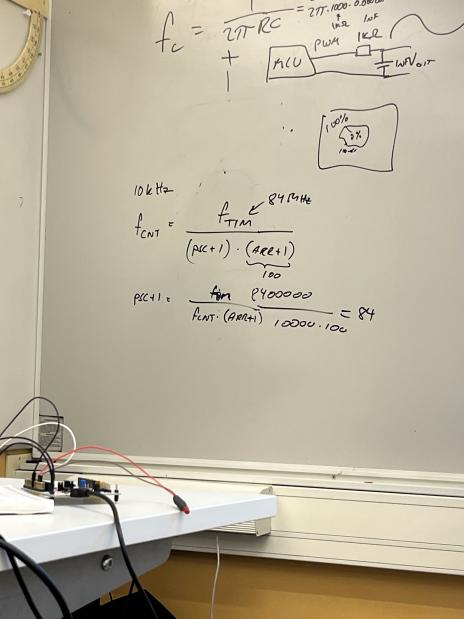 f_c = 1 / 2πRC = 2π·1000·0.0000
1kΩ 1nF
MCU PWM 1kΩ
1nF V_OUT
100%
0%
10kHz
f_CNT = f_TIM / (PSC+1) · (ARR+1)
84MHz
100
PSC+1 = f_TIM / f_CNT · (ARR+1) 8400000 / 10000·100 = 84